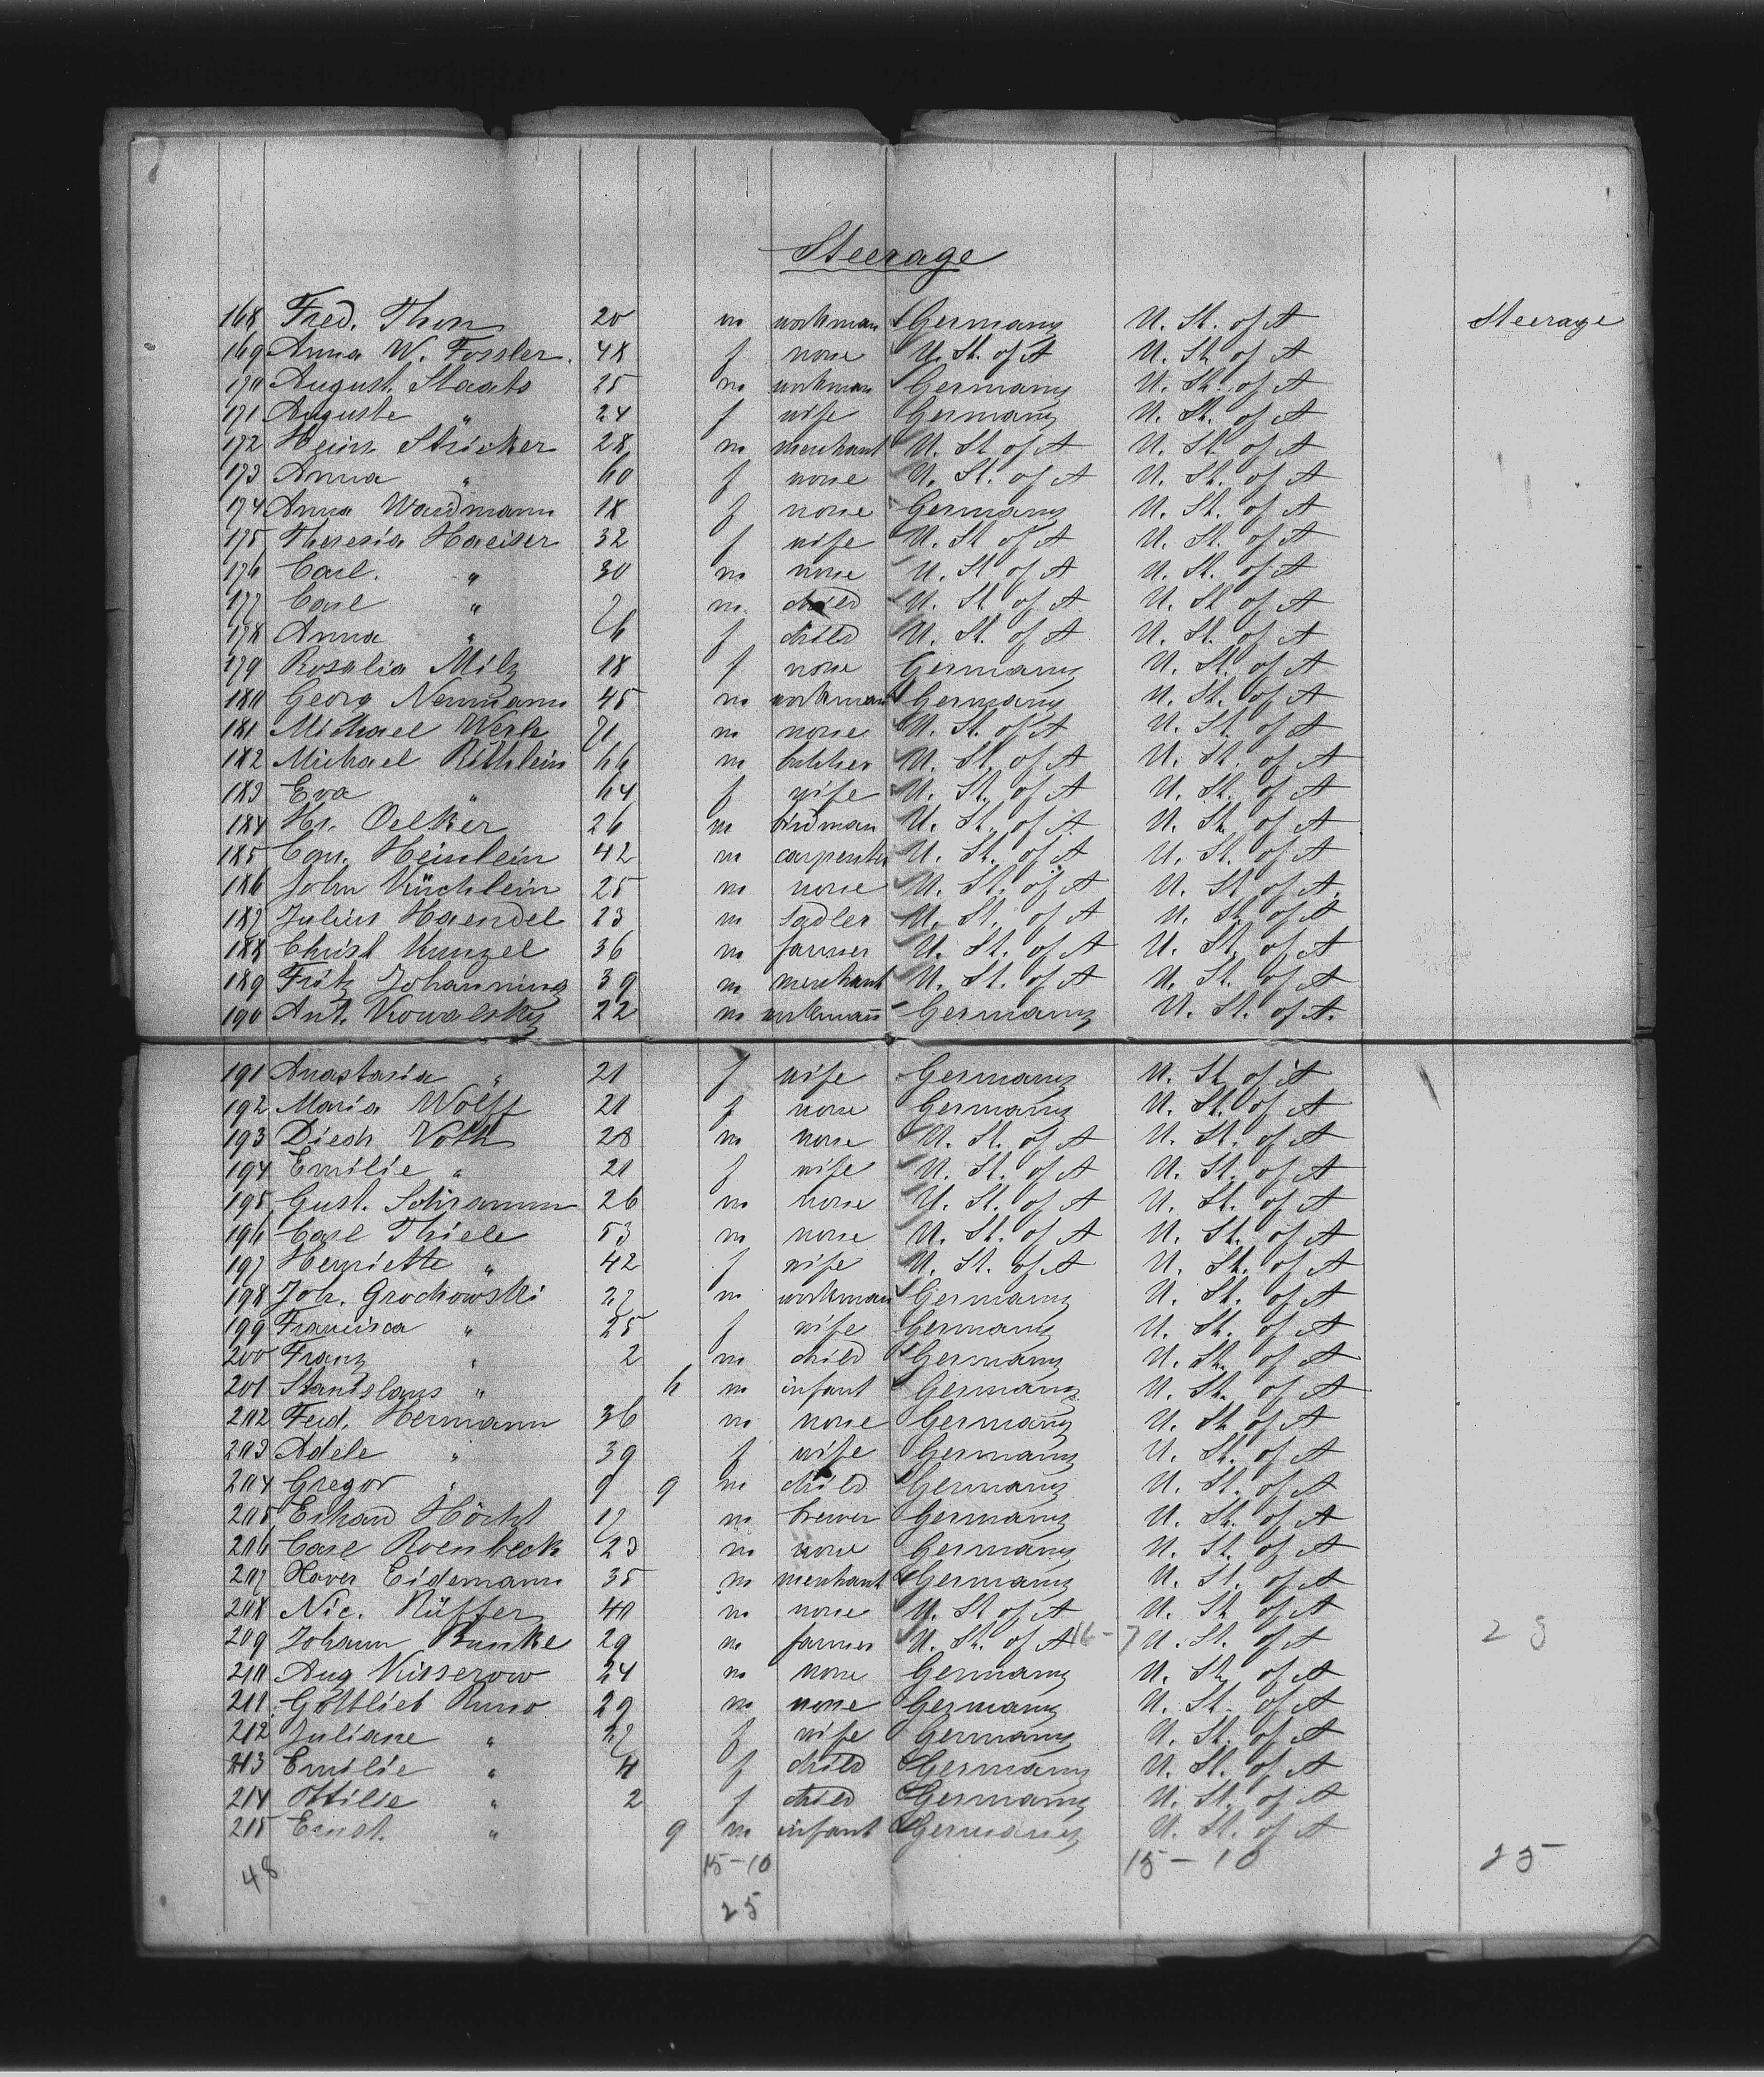 Steerage
168 Fred. Thon 20 m workman Germany U. St. of A Steerage
169 Anna W. Fossler. 48 f none U. St. of A U. St. of A
170 August Staats 25 m workman Germany U. St. of A
171 Auguste " 24 f wife Germany U. St. of A
172 Heinr Stricker 28 m merchant U. St. of A U. St. of A
173 Anna " 60 f none U. St. of A U. St. of A
174 Anna Waidmann 18 f none Germany U. St. of A
175 Theresia Haeiser 32 f wife U. St of A U. St. of A
176 Carl. " 30 m none U. St of A U. St. of A
177 Carl " 7 m child U. St of A U. St of A
178 Anna " 6 f child U. St. of A U. St. of A
179 Rosalia Milz 18 f none Germany U. St. of A
180 Georg Neumann 45 m workman Germany U. St. of A
181 Michael Werk 71 m none U. St. of A U. St. of A
182 Michael Röthlein 66 m butcher U. St. of A U. St. of A
183 Eva " 64 f wife U. St. of A U. St. of A
184 Hr. Oelker 26 m birdman U. St. of A U. St. of A
185 Con. Heinlein 42 m carpenter U. St. of A U. St. of A
186 John Küchlein 25 m none U. St. of A U. St of A.
187 Julius Haendel 23 m sadler U. St. of A U. St. of A
188 Christ Kunzel 36 m farmer U. St. of A U. St. of A
189 Fritz Johanning 39 m merchant U. St. of A U. St. of A
190 Ant. Kowalsky 22 m workmañ Germany U. St. of A.
191 Anastasia " 21 f wife Germany U. St of A
192 Maria Wolff 21 f none Germany U. St. of A
193 Diedr Voth 28 m none U. St. of A U. St. of A
194 Emilie " 21 f wife U. St. of A U. St. of A
195 Gust. Schramm 26 m none U. St. of A U. St. of A
196 Carl Thiele 53 m none U. St. of A U. St. of A
197 Henriette " 42 f wife U. St. of A U. St. of A
198 Joh. Grochowski 27 m workman Germany U. St. of A
199 Francisca " 25 f wife Germany U. St. of A
200 Franz " 2 m child Germany U. St. of A
201 Stanislaus " 6 m infant Germany U. St. of A
202 Ferd. Hermann 36 m none Germany U. St of A
203 Adele " 39 f wife Germany U. St. of A
204 Gregor " 9 9 m child Germany U. St. of A
205 Erhard Höchl 17 m brewer Germany U. St. of A
206 Carl Roenbeck 23 m none Germany U. St. of A
207 Xaver Eidemann 35 m merchant Germany U. St. of A
208 Nic. Rüffer 40 m none U. St of A U. St of A
209 Johann Bunke 29 m farmer U. St. of A 16-7 U. St. of A 23
210 Aug Kisserow 24 m none Germany U. St. of A
211 Gottlieb Russo 29 m none Germany U. St. of A
212 Juliane " 27 f wife Germany U. St. of A
213 Emilie " 4 f child Germany U. St. of A
214 Ottilie " 2 f child Germany U. St. of A
215 Ernst. " 9 m infant Germany U. St. of A
48 15-10 15-10 25
25